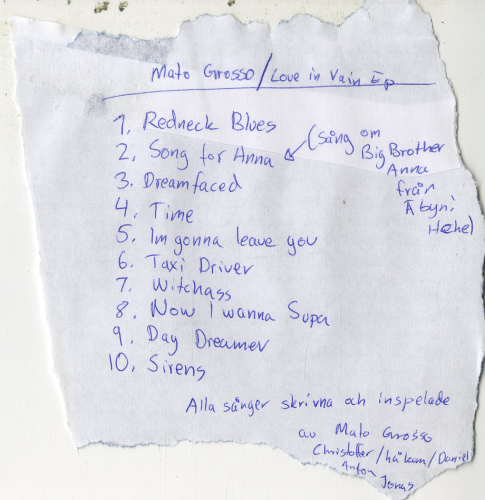 Mato Grosso / Love in Vain Ep
1. Redneck Blues
2. Song for Anna
(Sång om
Big Brother
Anna
från
Åbyn!
Hehe)
3. Dreamfaced
4. Time
5. Im gonna leave you
6. Taxi Driver
7. Witchass
8. Now I wanna Supa
9. Day Dreamer
10. Sirens
Alla sånger skrivna och inspelade
av Mato Grosso
Christoffer / håkan / Daniel
Anton Jonas